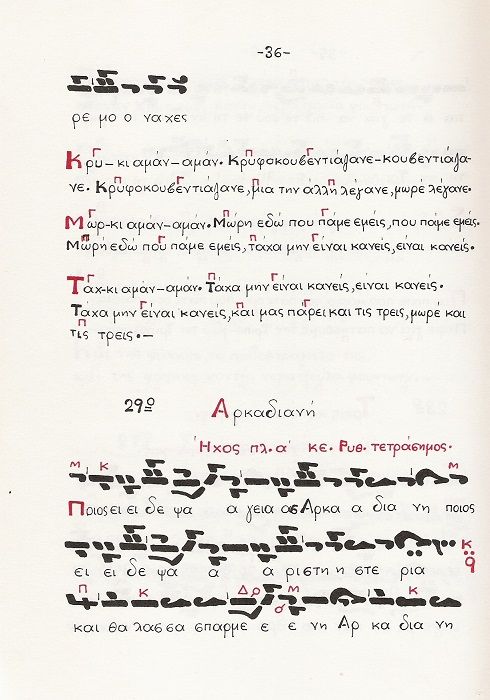 -36-
ρε μο ο ναχες
Κρυ-κι αμάν-αμάν. Κρυφοκουβεντιάζανε-κουβεντιάζα-
νε. Κρυφοκουβεντιάζανε, μια την άλλη λέγανε, μωρέ λέγανε.
Μωρ-κι αμάν-αμάν. Μωρη εδώ που πάμε εμείς, που πάμε εμείς.
Μωρή εδώ που πάμε εμείς, τάχα μην είναι κανείς, είναι κανείς.
Τάχ-κι αμάν-αμάν. Τάχα μην είναι κανείς, είναι κανείς.
Τάχα μην είναι κανείς, και μας πάρει και τις τρεις, μωρέ και
τις τρεις.-
29ο Αρκαδιανή
Ήχος πλ. α' κε. Ρυθ. τετράσημος.
Ποιος ει ει δε ψα α γεια ας Αρκα α δια νη ποιος
ει ει δε ψα α α ριστη η στε ρια
και θα λασσα σπαρμε ε ε νη Αρ κα δια νη